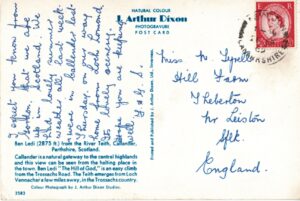 NATURAL COLOUR
J. Arthur Dixon
PHOTOGRAVURE
POST CARD
I expect you know from
Gordon, that we are
in Scotland. We
had lovely summer
weather all last week.
were in Callander last
Thursday on a day
tour from Loch Lomond
lovely scenery.
Hope you are keeping
well
Ben Ledi (2875 ft.) from the River Teith, Callander,
Perthshire, Scotland.
Callander is a natural gateway to the central highlands
and this view can be seen from the halting place in the
town. Ben Ledi "The Hill of God," is an easy climb
from the Trossachs Road. The Teith emerges from Loch
Vennachar a few miles away, in the Trossachs country.
Colour Photograph by J. Arthur Dixon Studios.
2583
Printed and Published by J. Arthur Dixon Ltd.
E R
Miss M.
Hill Farm
Theberton
Nr Leiston
Sflk.
England.